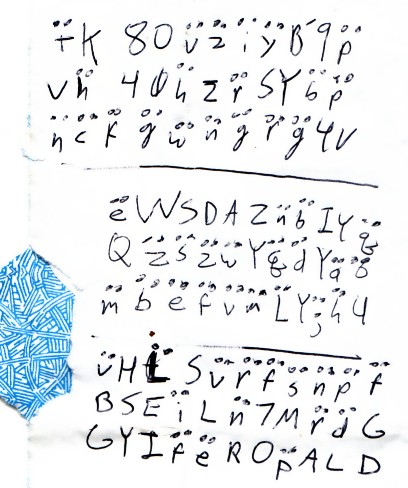 ẗ K 8 0 v̈ z̈ ï ÿ B 9 p̈
v ḧ 4 0 ḧ z̈ r̈ S Y b̈ p̈
n̈ c̈ k̈ g̈ ẅ n̈ g̈ r̈ g̈ 4 V
ë W S D A Z n̈ b̈ I Y q̈
Q z̈ s̈ z̈ ẅ Y q̈ d̈ Y q̈ 8̈
m̈ b̈ ë f̈ v̈ n̈ L Y j̈ ḧ 4
v̈ H L S v̈ r̈ f̈ s̈ n̈ p̈ f̈
B S E ï L n̈ 7 M r̈ d̈ G
G Y I f̈ ë R O p̈ A L D